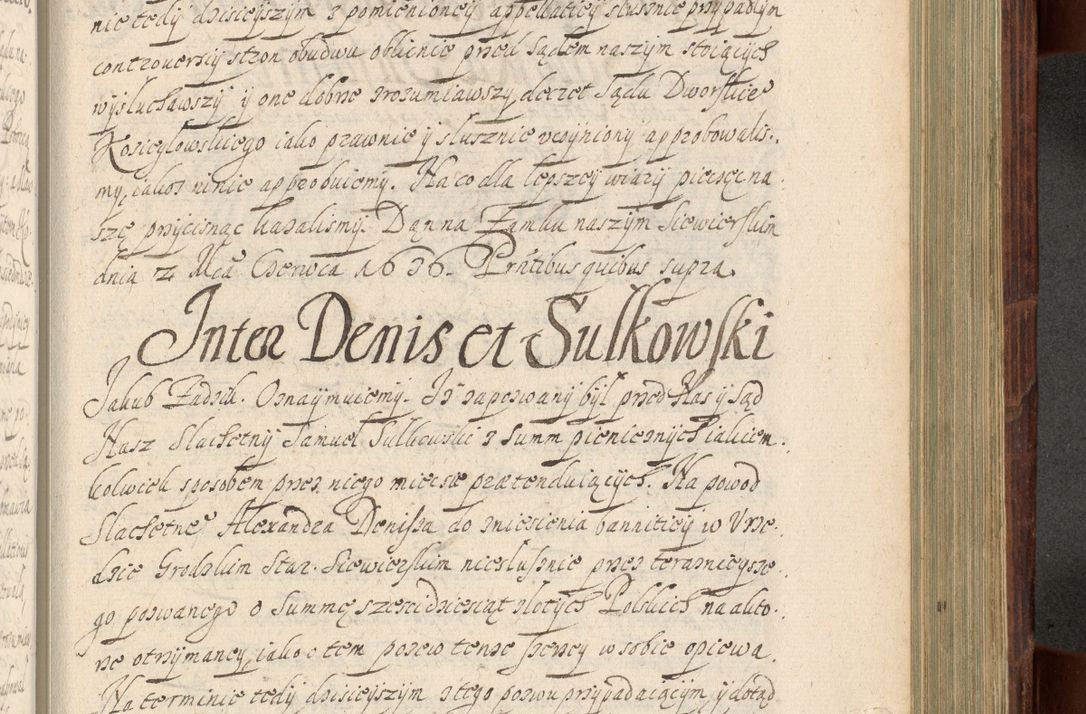 nie tedÿ dzisieÿszÿm z pomienioneÿ appellatieÿ słusznie przÿpadłÿm
controuersiÿ stron obudwu oblicnie przed Sądem naszÿm stoiącÿch
wÿsłuchawszÿ ÿ one dobrze zrozumiawszÿ, decret Sądu Dworskie°
Kosiegłowskiego iako prawnie ÿ słusznie vczÿniony approbowalis.
mÿ, iakoz ninie approbuiemÿ. Na co dla lepszeÿ wiarÿ pieczęc na
szę przÿcisnąc kazalismÿ. Dan na Zamku naszÿm Siewierskim
dnia 2 Mca Czerwca 1636. Pñtibus quibus supra.
Inter Denis et Sulkowski
Jakub Zadzik. Oznaÿmuiemÿ. Iz zapozwanÿ bÿł przed Nas ÿ Sąd
Nasz Slachetnÿ Samuel Sulkowski z Summ pieniezznÿch iakiem
kolwiek sposobem przez niego miecse prætenduiącÿch. Na powod
Slachetne° Alexandra Denissa do zniesienia bannitieÿ w Vrze.
dzie Grodzkim Star. Siewierskim niesłusznie przez teraznieÿsze
go pozwanego o Summę szescidziesiąt złotÿch Polskich na akto.
rze otrzÿmaneÿ, iako o tem pozew tenze szerzeÿ w sobie opiewa.
Na terminie tedÿ dzisieÿszÿm z tego pozwu przÿpadaiącÿm, ÿ dotąd